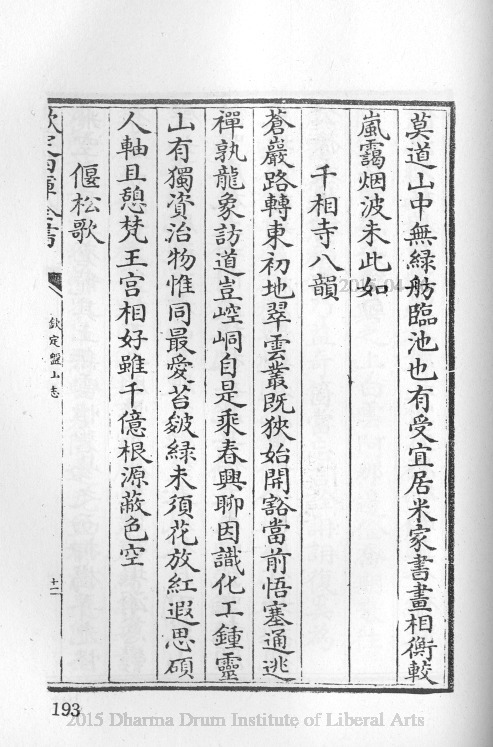 莫道山中無緑舫臨池也有受宜居米家書畫相衡較
嵐靄烟波未此如
千相寺八韻
蒼巖路轉東初地翠雲叢既狹始開豁當前悟塞通逃
禪孰龍象訪道豈崆峒自是乘春興聊因識化工鍾靈
山有獨資治物惟同最愛苔皴緑未須花放紅遐思碩
人軸且憩梵王宫相好雖千億根源蔽色空
偃松歌
欽定四庫全書
欽定盤山志
十一
193
2015 Dharma Drum Institute of Liberal Arts